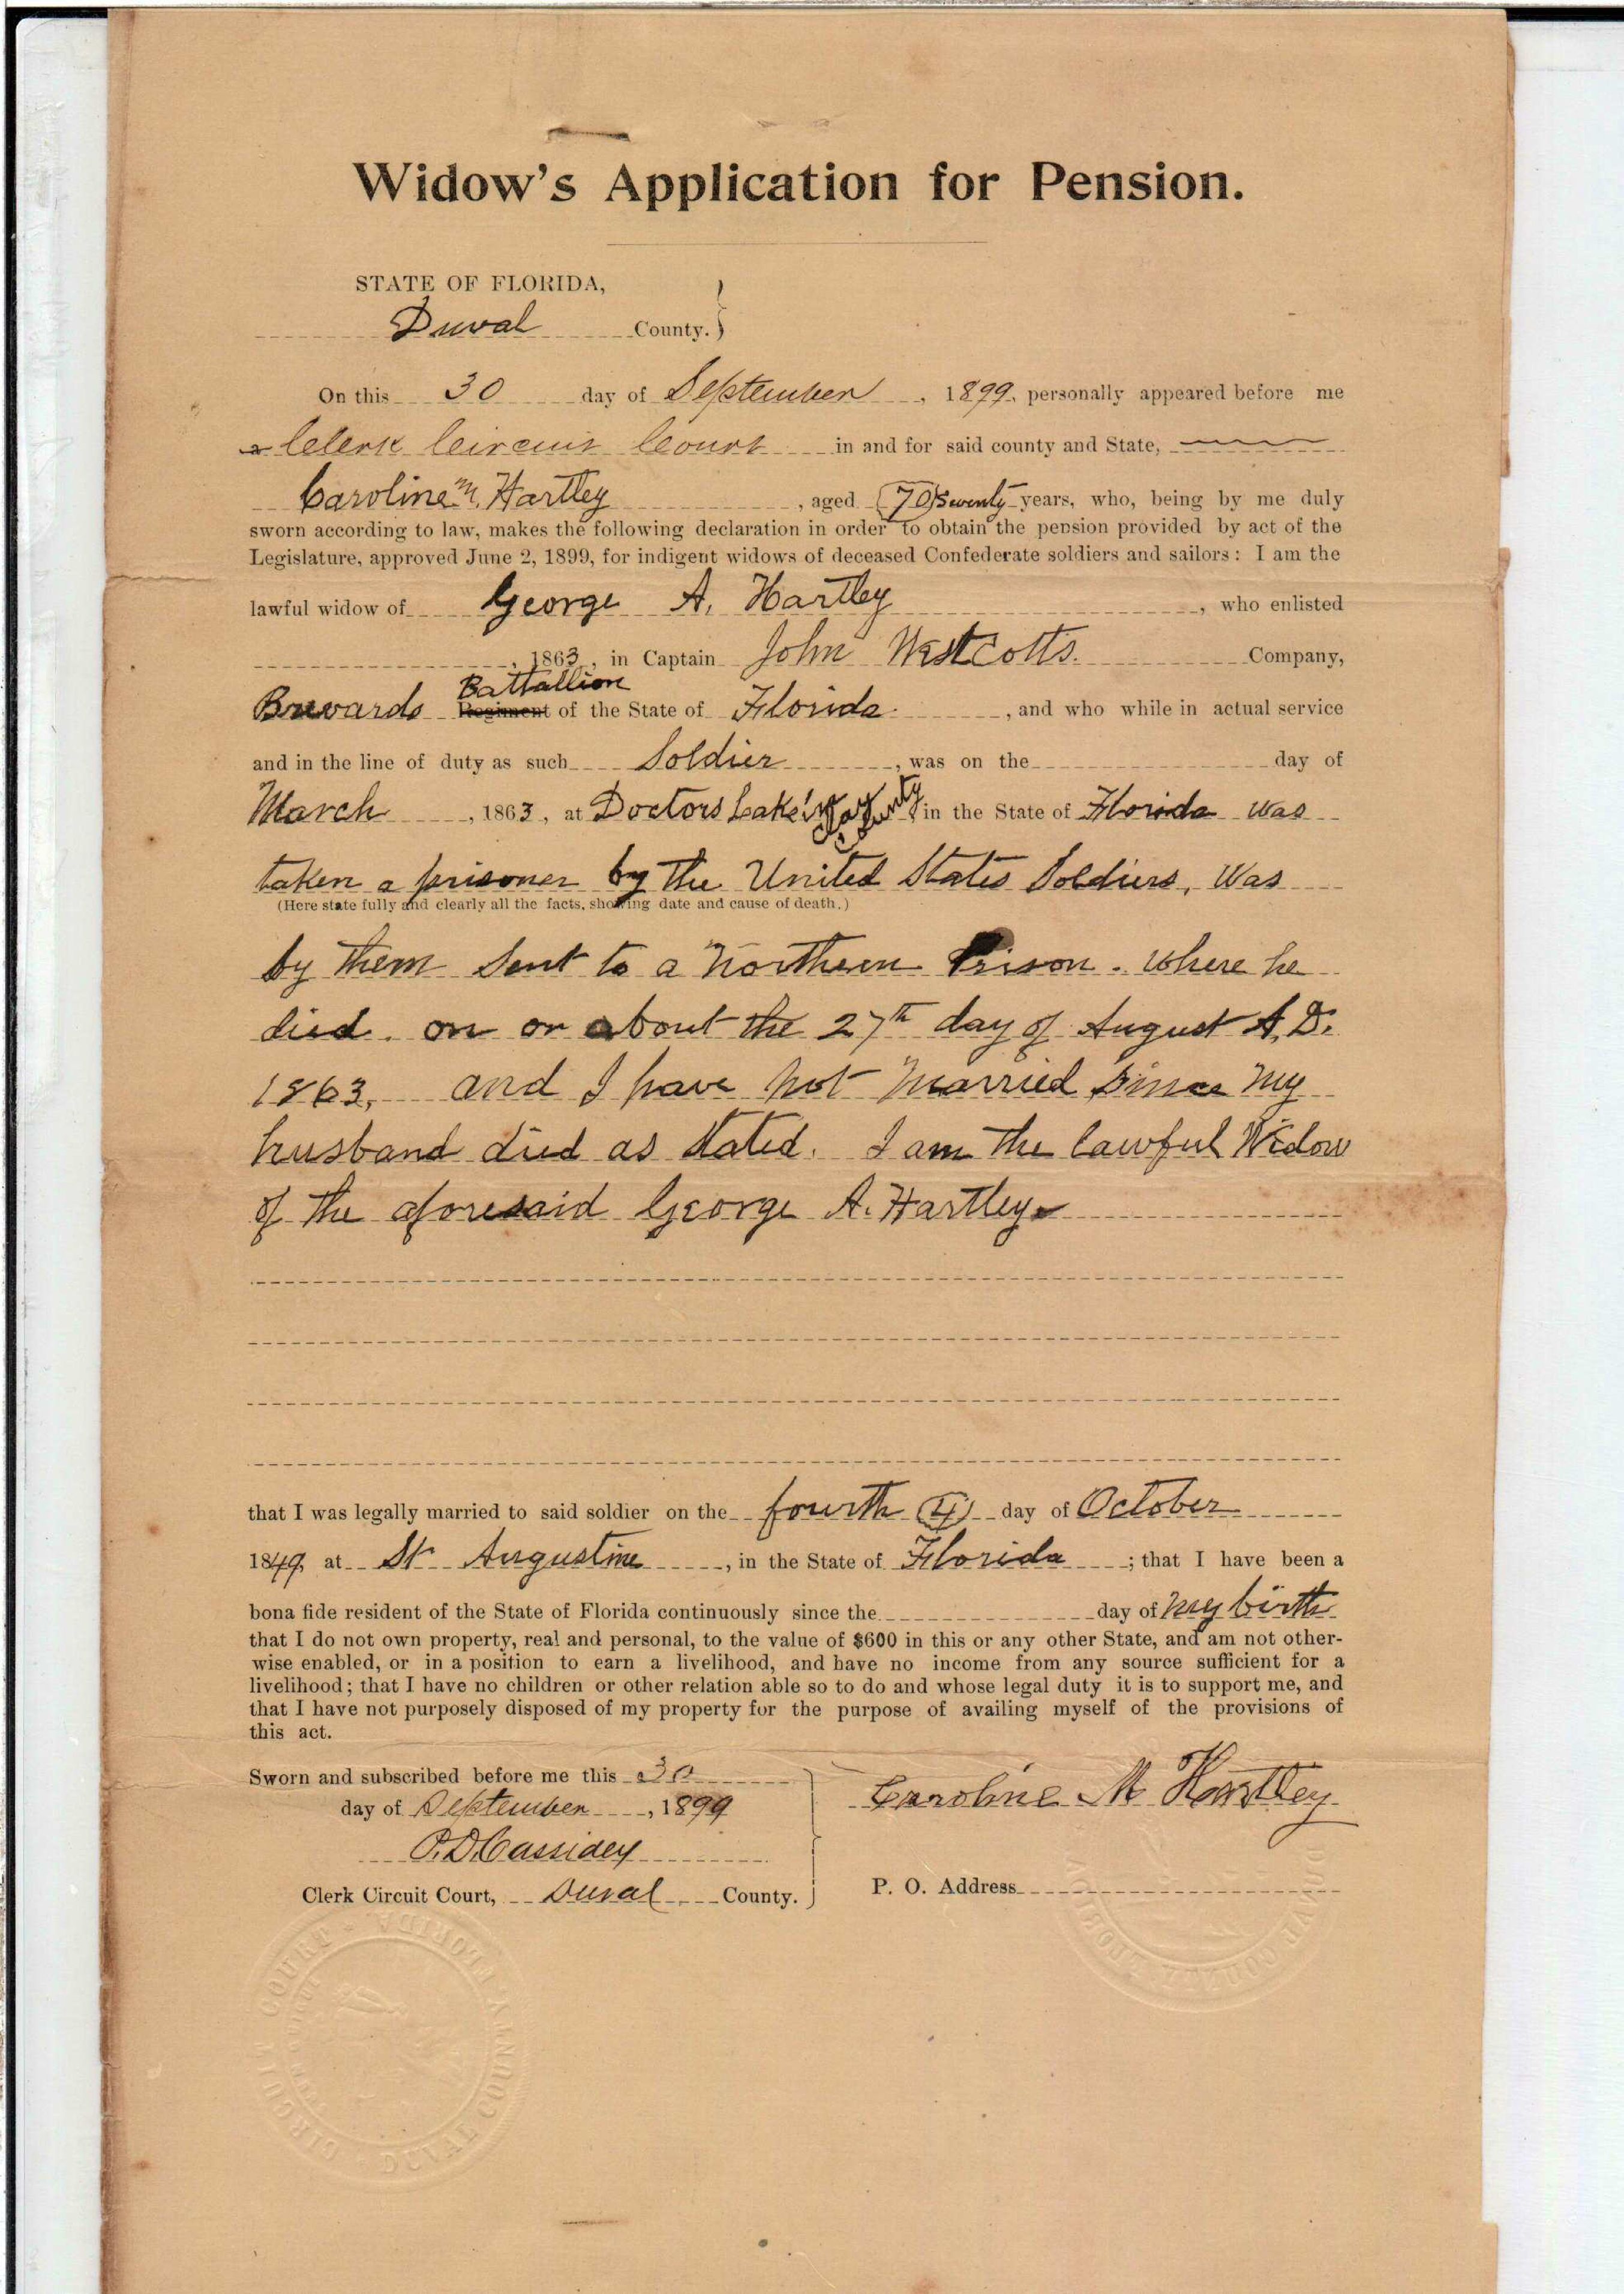 Widow's Application for Pension.
STATE OF FLORIDA,
Duval County.
On this 30 day of September, 1899, personally appeared before me
a Clerk Circuit Court in and for said county and State,
Caroline M. Hartley, aged (70) Seventy years, who, being by me duly
sworn according to law, makes the following declaration in order to obtain the pension provided by act of the
Legislature, approved June 2, 1899, for indigent widows of deceased Confederate soldiers and sailors: I am the
lawful widow of George A. Hartley, who enlisted
, 1863, in Captain John Westcotts. Company,
Battallion
Brevards Regiment of the State of Florida, and who while in actual service
and in the line of duty as such Soldier, was on the day of
March, 1863, at Doctors Lake in Clay County in the State of Florida was
taken a prisoner by the United States Soldiers, was
(Here state fully and clearly all the facts, showing date and cause of death.)
by them sent to a Northern Prison. where he
died. on or about the 27th day of August A.D.
1863, and I have not married since my
husband died as stated. I am the lawful Widow
of the aforesaid George A. Hartley.
that I was legally married to said soldier on the fourth (4) day of October
1849, at St Augustine, in the State of Florida; that I have been a
bona fide resident of the State of Florida continuously since the day of my birth
that I do not own property, real and personal, to the value of $600 in this or any other State, and am not other-
wise enabled, or in a position to earn a livelihood, and have no income from any source sufficient for a
livelihood; that I have no children or other relation able so to do and whose legal duty it is to support me, and
that I have not purposely disposed of my property for the purpose of availing myself of the provisions of
this act.
Sworn and subscribed before me this 30
day of September, 1899
P.D. Cassidey
Clerk Circuit Court, Duval County.
Caroline M Hartley
P. O. Address
CIRCUIT COURT · DUVAL COUNTY FLORIDA
DUVAL COUNTY FLORIDA